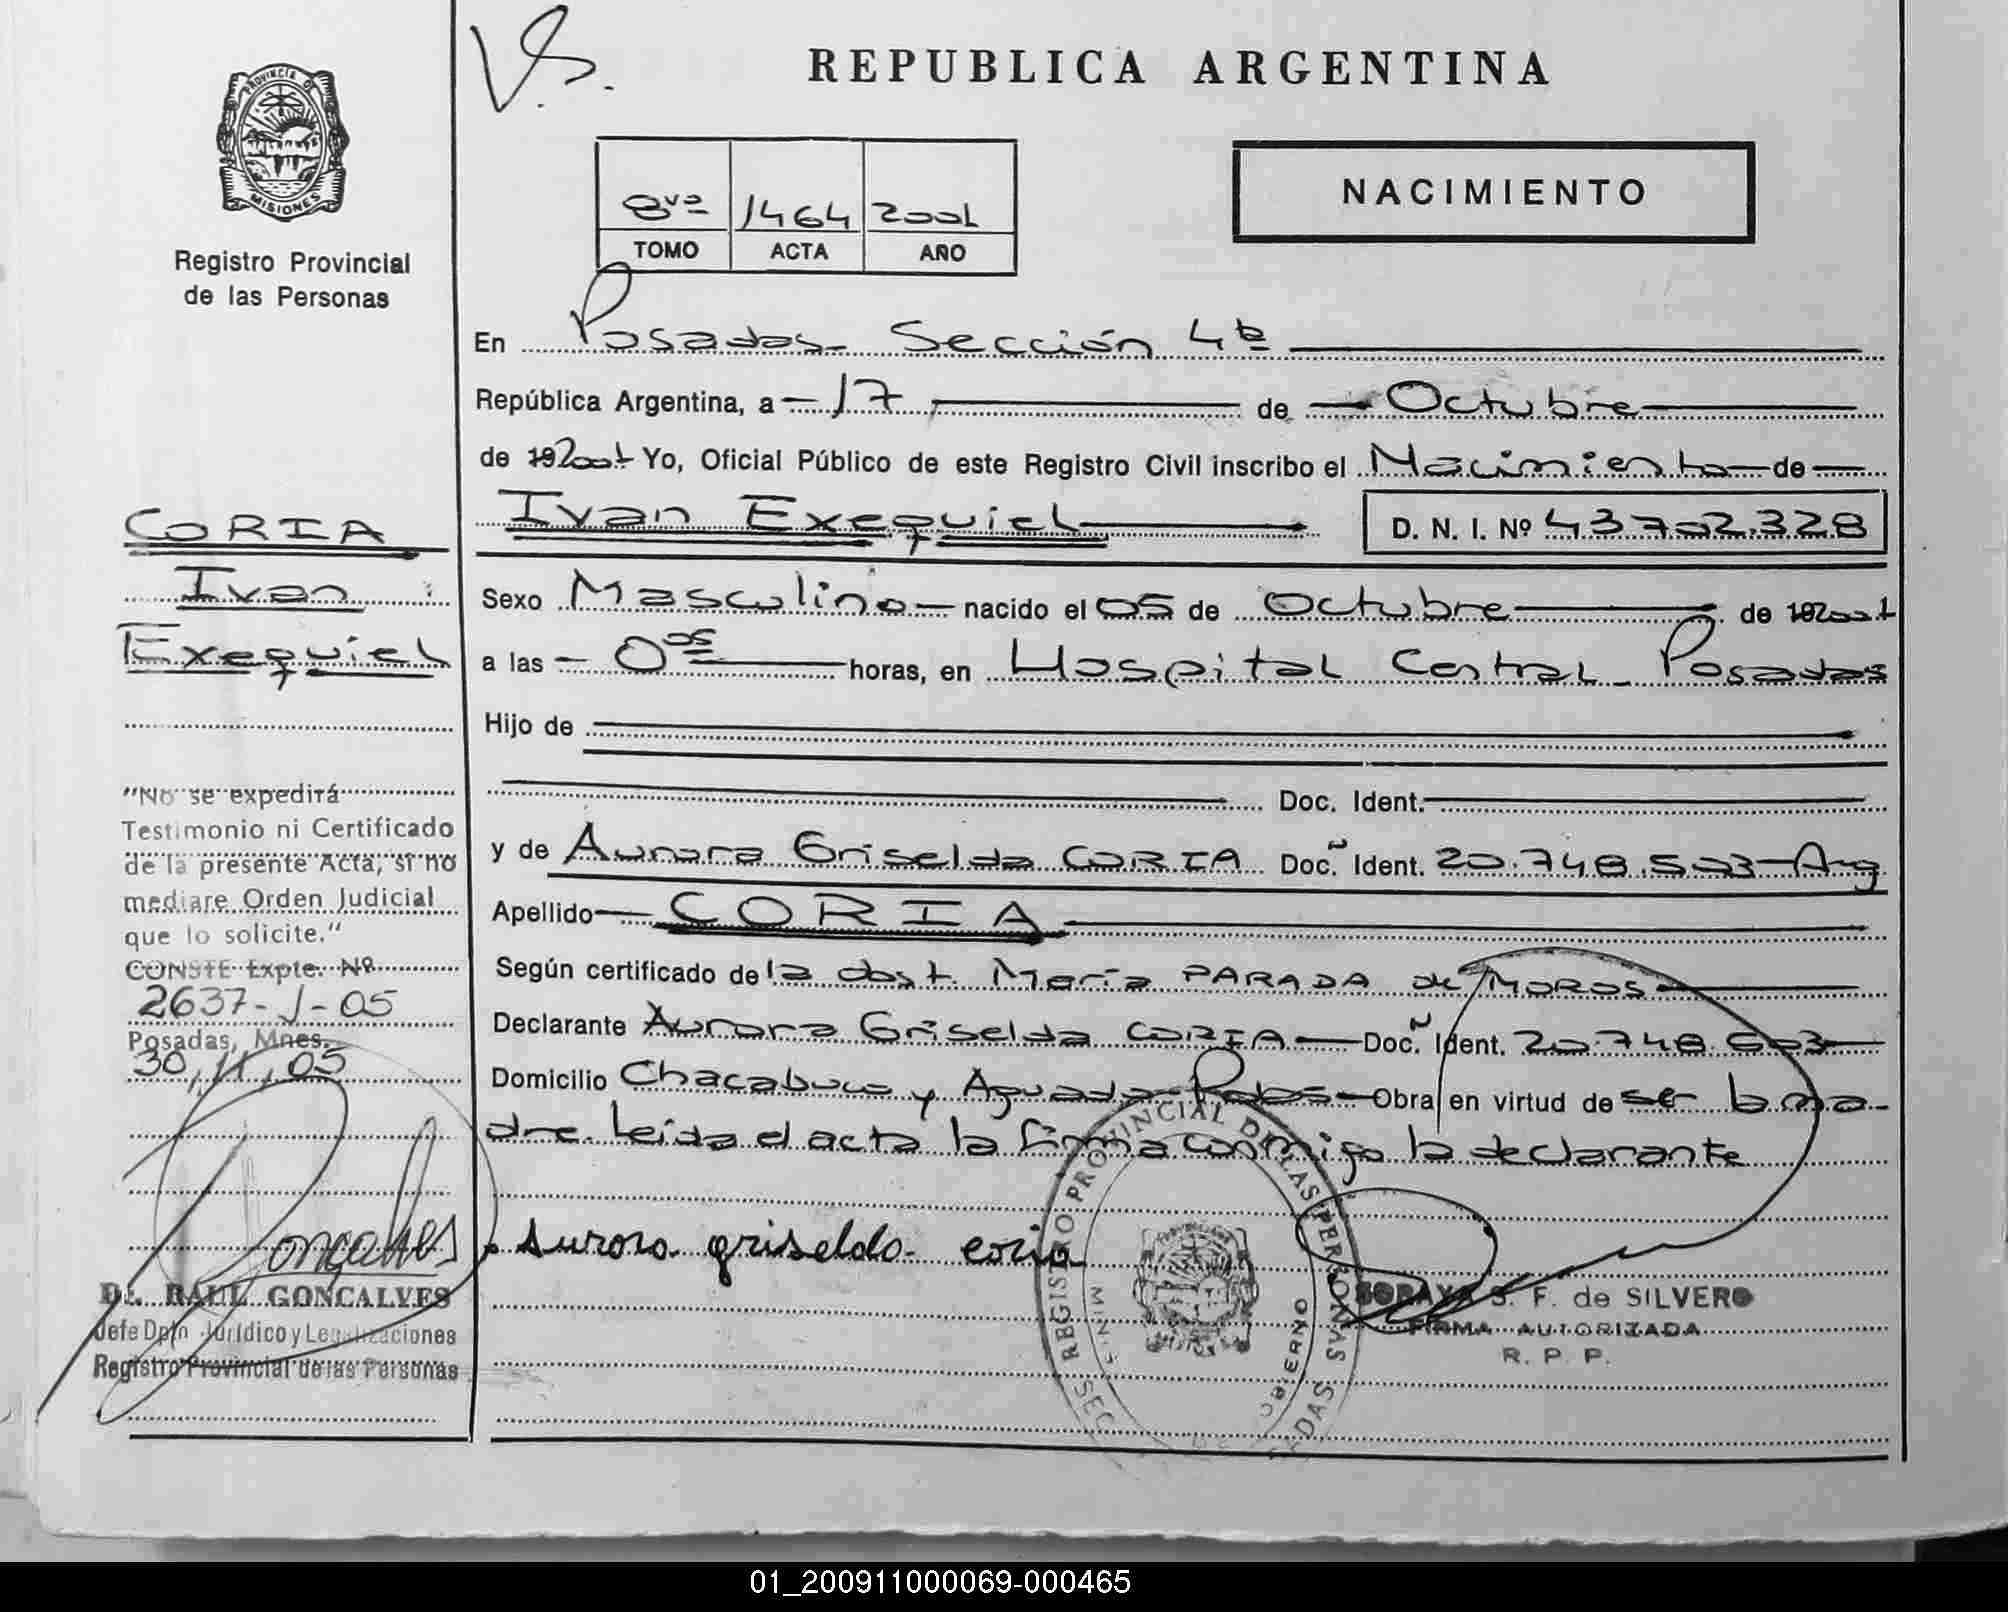 V.S.
REPUBLICA ARGENTINA
PROVINCIA DE
MISIONES
Registro Provincial
de las Personas
8vo 1464 2001
TOMO ACTA AÑO
NACIMIENTO
En Posadas - Sección 4ta
República Argentina, a 17 de Octubre
de 192001 Yo, Oficial Público de este Registro Civil inscribo el Nacimiento de
Ivan Exequiel D. N. I. Nº 43702.328
Sexo Masculino nacido el 05 de Octubre de 192001
a las 0 05 horas, en Hospital Central - Posadas
Hijo de
Doc. Ident.
y de Aurora Griselda CORIA Doc. Ident. 20.748.503 Arg
Apellido CORIA
Según certificado de la obst. María PARADA de MOROS
Declarante Aurora Griselda CORIA Doc. Ident. 20.748.503
Domicilio Chacabuco y Aguado - Pdas Obra en virtud de ser la ma-
dre. Leida el acta la firma conmigo la declarante
Aurora griselda coria
CORIA
Ivan
Exequiel
"No se expedirá
Testimonio ni Certificado
de la presente Acta, si no
mediare Orden Judicial
que lo solicite."
CONSTE Expte. Nº
2637-J-05
Posadas, Mnes.
30, 11, 05
Goncalves
Dr. RAUL GONCALVES
Jefe Dpto. Jurídico y Legalizaciones
Registro Provincial de las Personas
REGISTRO PROVINCIAL DE LAS PERSONAS
SORAYA S. F. de SILVERO
FIRMA AUTORIZADA
R. P. P.
01_200911000069-000465